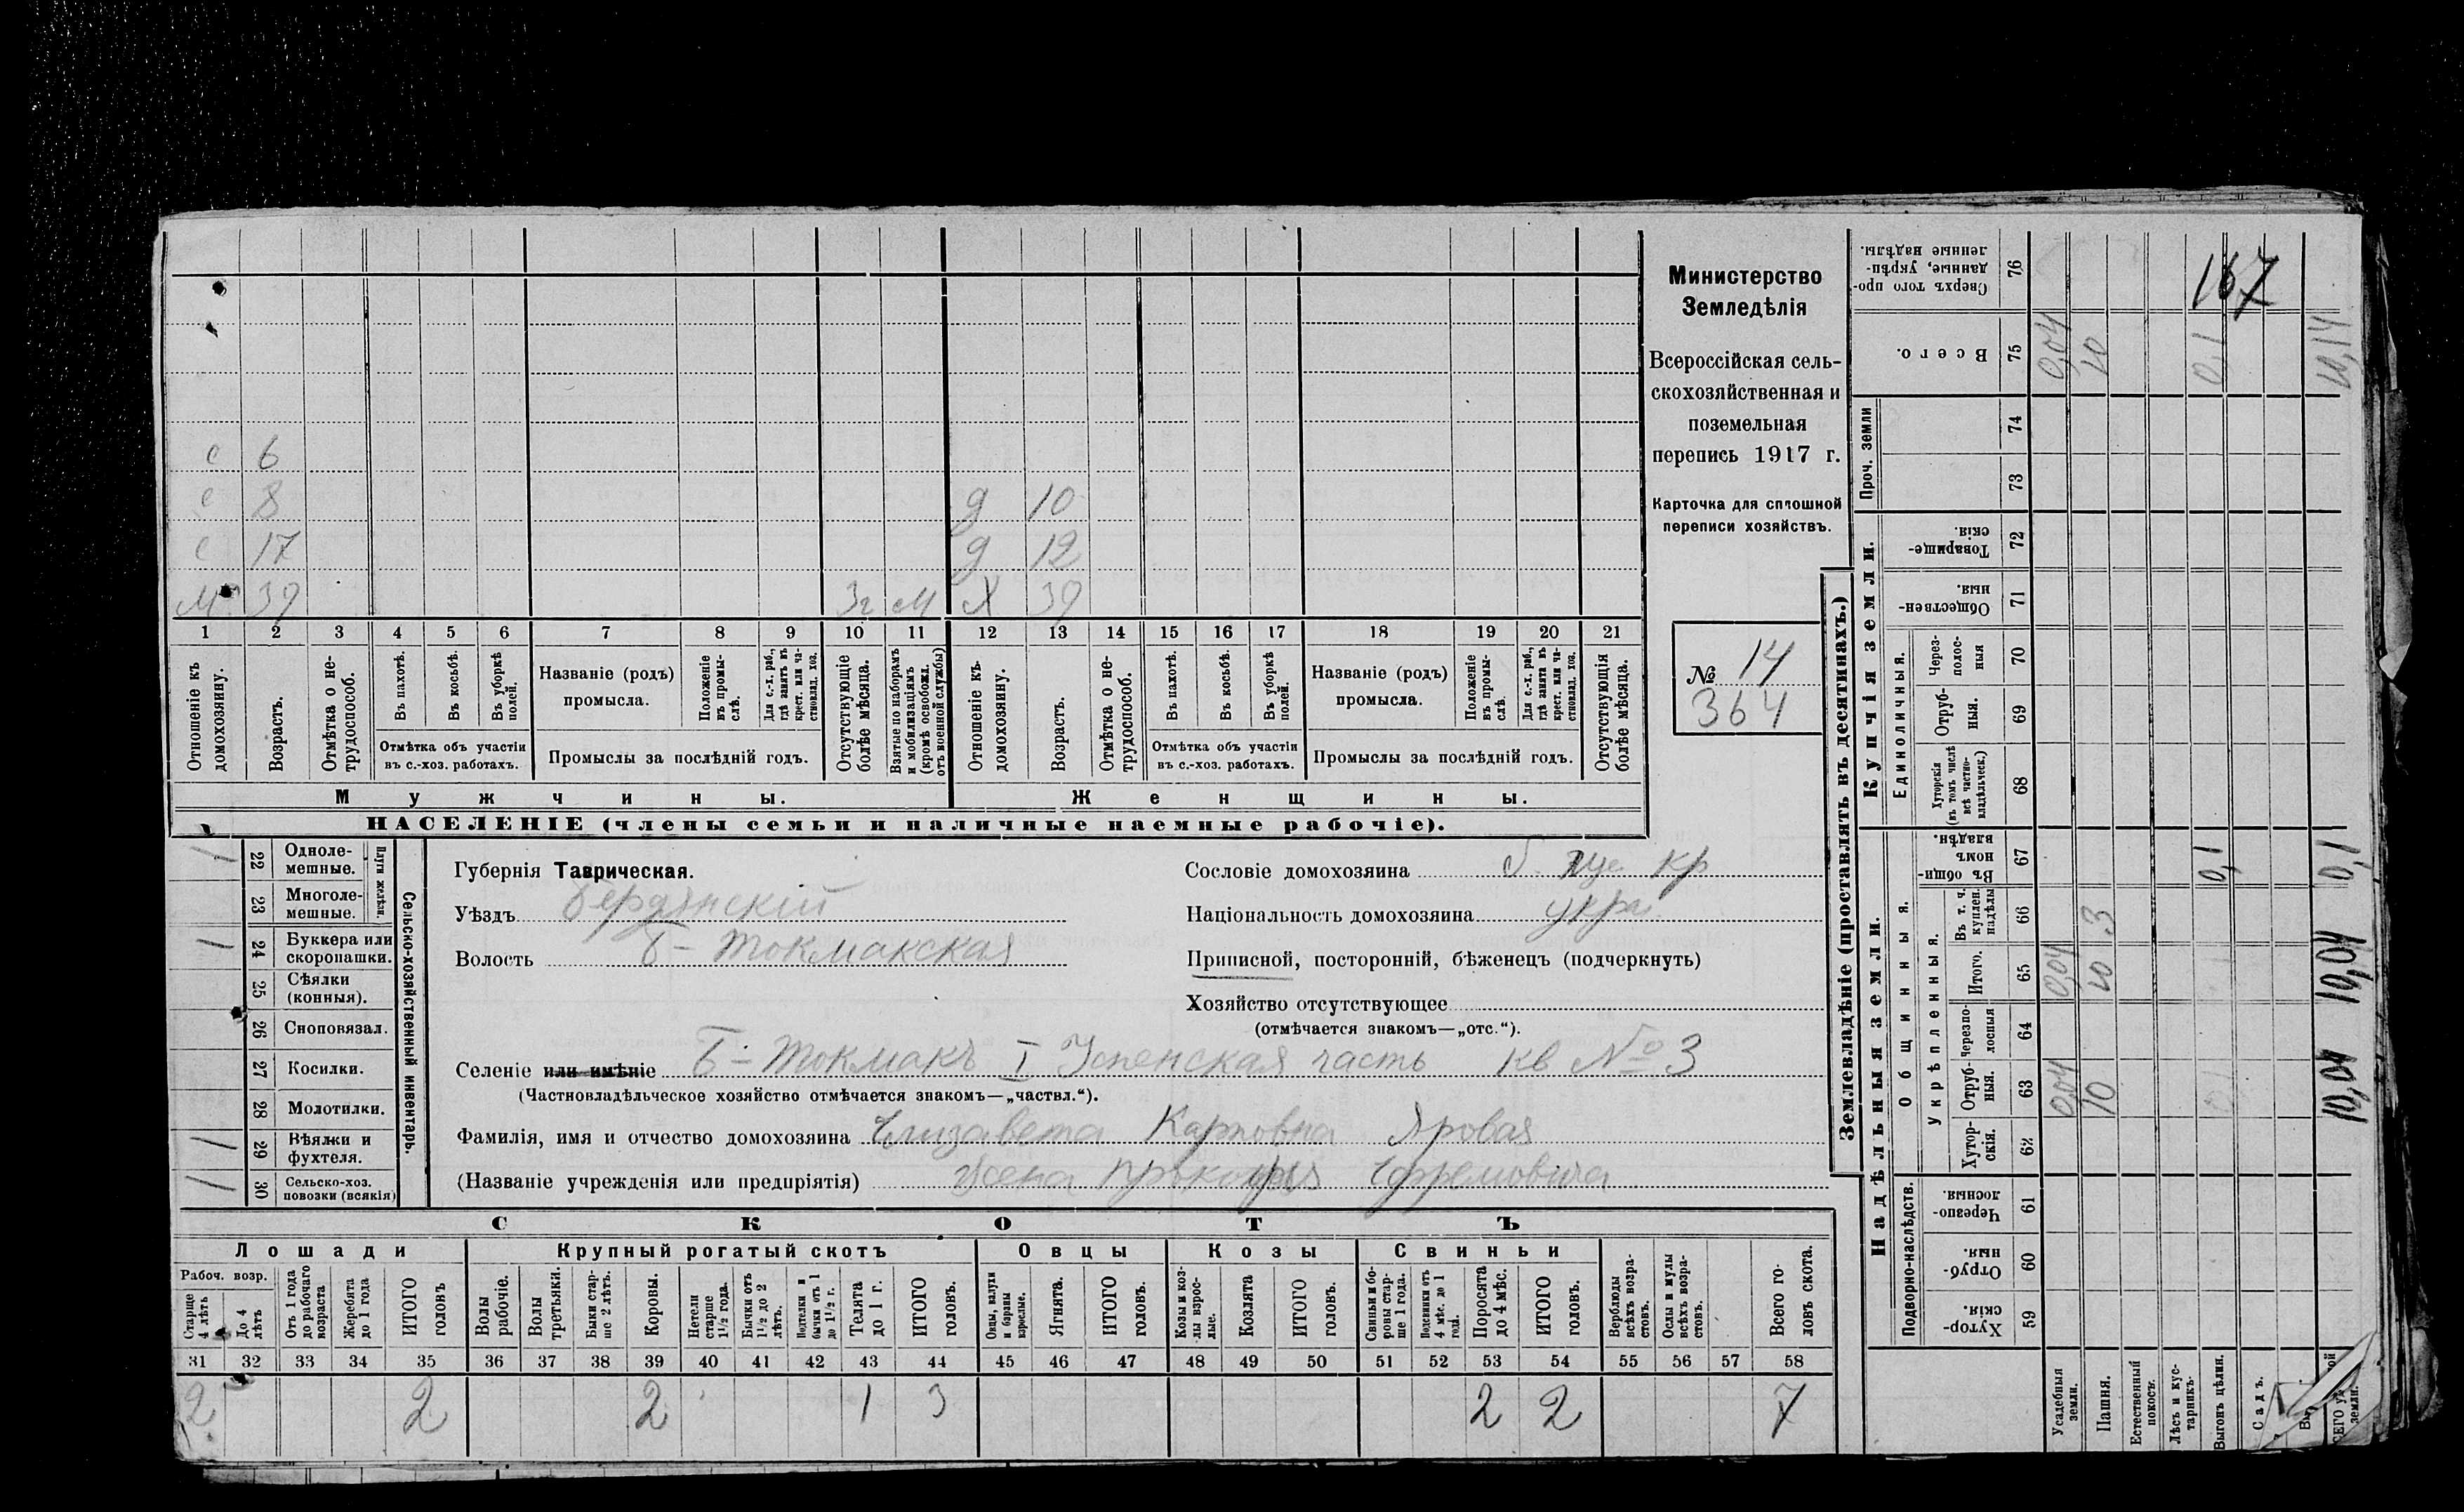 с 6
с 8 д 10
с 17 д 12
м 39 3г м Х 39
1 2 3 4 5 6 7 8 9 10 11 12 13 14 15 16 17 18 19 20 21
Отношеніе къ домохозяину.
Возрастъ.
Отмѣтка о нетрудоспособ.
Въ пахотѣ.
Въ косьбѣ.
Въ уборкѣ полей.
Отмѣтка объ участіи въ с.-хоз. работахъ.
Названіе (родъ) промысла.
Положеніе въ промыслѣ.
Для с.-х. раб., гдѣ занятъ въ крест. или частновлад. хоз.
Промыслы за послѣдній годъ.
Отсутствующіе болѣе мѣсяца.
Взятые по наборамъ и мобилизаціямъ (кромѣ освобожд. отъ военной службы)
Отношеніе къ домохозяину.
Возрастъ.
Отмѣтка о нетрудоспособ.
Въ пахотѣ.
Въ косьбѣ.
Въ уборкѣ полей.
Отмѣтка объ участіи въ с.-хоз. работахъ.
Названіе (родъ) промысла.
Положеніе въ промыслѣ.
Для с.-х. раб., гдѣ занята въ крест. или частновлад. хоз.
Промыслы за послѣдній годъ.
Отсутствующія болѣе мѣсяца.
Мужчины.
Женщины.
НАСЕЛЕНІЕ (члены семьи и наличные наемные рабочіе).
Министерство
Земледѣлія
Всероссійская сель-
скохозяйственная и
поземельная
перепись 1917 г.
Карточка для сплошной
переписи хозяйствъ.
№ 14
364
1 22 Однолемешные.
23 Многолемешные.
Плуги желѣзн.
1 24 Буккера или скоропашки.
25 Сѣялки (конныя).
26 Сноповязал.
27 Косилки.
28 Молотилки.
1 29 Вѣялки и фухтеля.
1 30 Сельско-хоз. повозки (всякія)
Сельско-хозяйственный инвентарь.
Губернія Таврическая.
Уѣздъ Бердянскій
Волость Б-Токмакская
Сословіе домохозяина кр
Національность домохозяина укра
Приписной, посторонній, бѣженецъ (подчеркнуть)
Хозяйство отсутствующее
(отмѣчается знакомъ—„отс.“).
Селеніе или имѣніе Б-Токмакъ I Успенская часть кв № 3
(Частновладѣльческое хозяйство отмѣчается знакомъ—„частвл.“).
Фамилія, имя и отчество домохозяина Елизавета Карповна Яровая
(Названіе учрежденія или предпріятія) жена Прокофія Ефремовича
СКОТЪ
Лошади
Крупный рогатый скотъ
Овцы
Козы
Свиньи
Рабоч. возр.
Старше 4 лѣтъ
До 4 лѣтъ
Отъ 1 года до рабочаго возраста
Жеребята до 1 года
ИТОГО головъ
Волы рабочіе.
Волы третьяки.
Быки старше 2 лѣтъ.
Коровы.
Нетели старше 1½ года.
Бычки отъ 1½ до 2 лѣтъ.
Подтелки и бычки отъ 1 до 1½ г.
Телята до 1 г.
ИТОГО головъ.
Овцы, валухи и бараны взрослые.
Ягнята.
ИТОГО головъ.
Козы и козлы взрослые.
Козлята
ИТОГО головъ.
Свиньи и боровы старше 1 года.
Подсвинки отъ 4 мѣс. до 1 года.
Поросята до 4 мѣс.
ИТОГО головъ.
Верблюды всѣхъ возрастовъ.
Ослы и мулы всѣхъ возрастовъ.
Всего головъ скота.
31 32 33 34 35 36 37 38 39 40 41 42 43 44 45 46 47 48 49 50 51 52 53 54 55 56 57 58
2 2 2 1 3 2 2 7
Землевладѣніе (проставлять въ десятинахъ.)
Надѣльныя земли.
Купчія земли.
Проч. земли
Подворно-наслѣдств.
Общинныя.
Укрѣпленныя.
Единоличныя.
Хуторскія. 59
Отрубныя. 60
Черезполосныя. 61
Хуторскія. 62
Отрубныя. 63
Черезполосныя 64
Итого. 65
Въ т. ч. куплен. надѣлы 66
Въ общинномъ владѣн. 67
Хуторскія (въ томъ числѣ всѣ частновладѣльческ.) 68
Отрубныя. 69
Черезполосныя 70
Общественныя. 71
Товарищескія. 72
73
74
Всего. 75
Сверхъ того проданные, укрѣпленные надѣлы. 76
Усадебныя земли. 0,04 0,04 0,04
Пашня. 10 10 3 10
Естественный покосъ.
Лѣсъ и кустарникъ.
Выгонъ цѣлин. 0,1 0,1
Садъ.
10,04 10,04 0,1 10,14
167